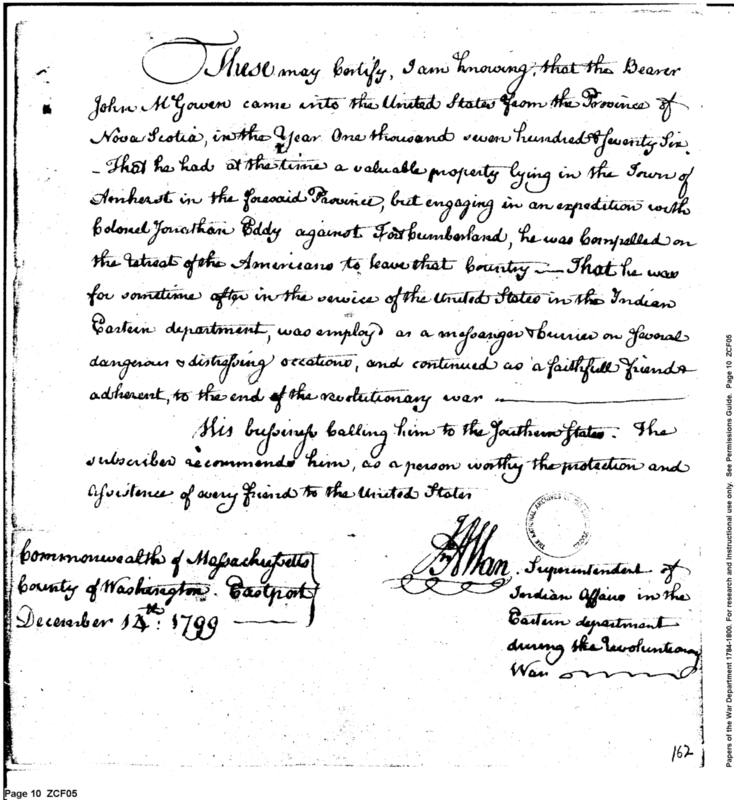 These may Certify, I am knowing, that the Bearer
John McGowen came into the United States from the Province of
Nova Scotia, in the Year One thousand seven hundred & Seventy Six
- That he had at the time a valuable property lying in the Town of
Amherst in the foresaid Province, but engaging in an expedition with
Colonel Jonathan Eddy against Fort Cumberland, he was Compelled on
the retreat of the Americans to leave that Country — That he was
for sometime after in the service of the United States in the Indian
Eastern department, was employd as a messanger & Currier on Several
dangerous & distressing occations, and continued as a faithfull friend &
adherent, to the end of the revolutionary war —
His bussiness Calling him to the Southern States. The
subscriber recommends him, as a person worthy the protection and
assistence of every friend to the United States
Commonwealth of Massachusetts
County of Washington. Eastport
December 14th: 1799 —
Jn Allan. Superintendent of
Indian Affairs in the
Eastern department
during the Revolutionary
War
162
Page 10 ZCF05
Papers of the War Department 1784-1800. For research and instructional use only. See Permissions Guide. Page 10 ZCF05